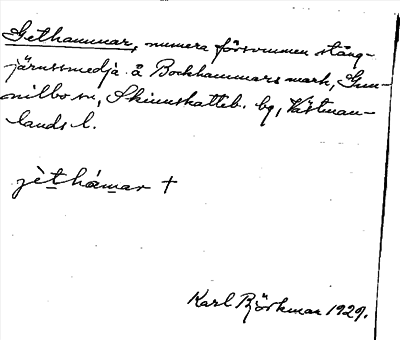 Gethammar, numera försvunnen stång-
järnssmedja å Bockhammars mark, Gun-
nilbo sn, Skinnskatteb. bg, Västman-
lands l.
jèthámar †
Karl Björkman 1929.